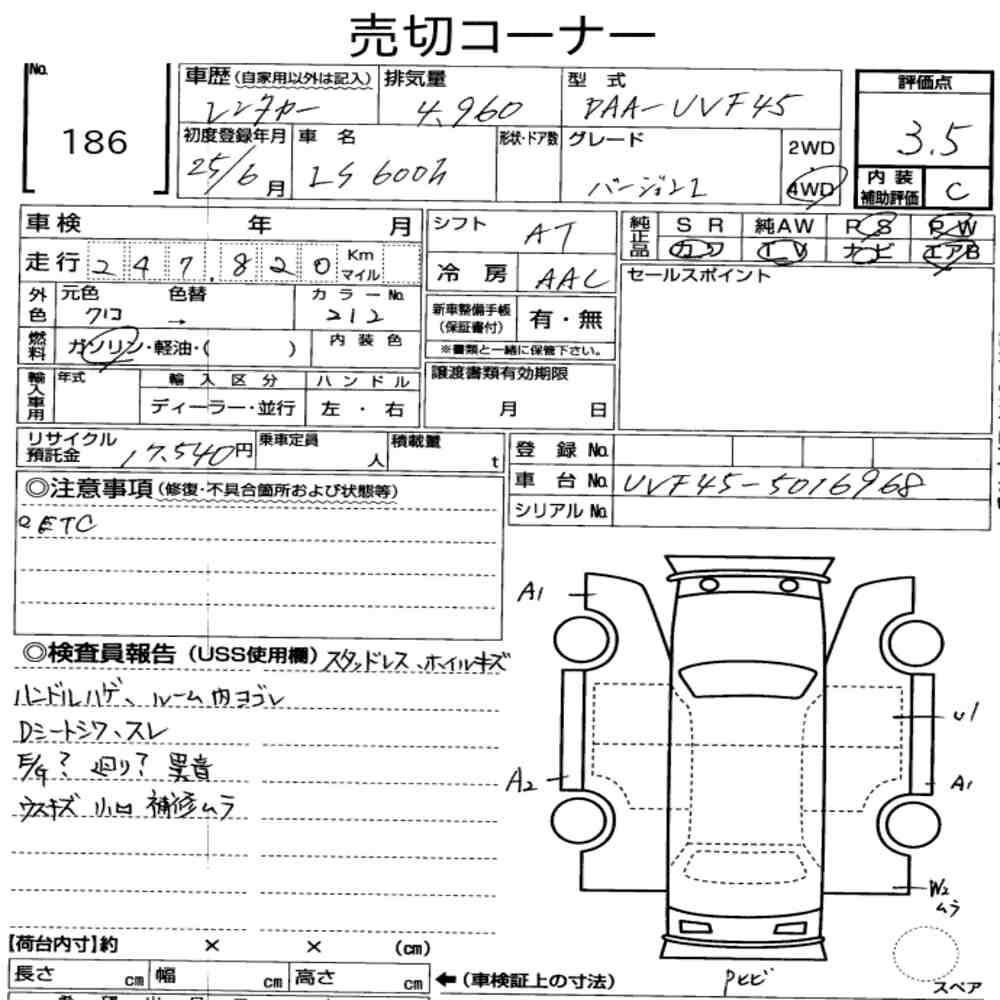 売切コーナー
No.
186
車歴(自家用以外は記入)
レンタカー
排気量
4,960
型式
DAA-UVF45
評価点
3.5
初度登録年月
25/6月
車名
LS600h
形状・ドア数
グレード
バージョンL
2WD
4WD
内装補助評価
C
車検 年 月
シフト
AT
純正品
SR 純AW PS PW
カワ TV ナビ エアB
走行 247,820 Km マイル
冷房
AAC
セールスポイント
外色
元色 色替 カラーNo.
クロ → 212
新車整備手帳(保証書付)
有・無
※書類と一緒に保管下さい。
燃料
ガソリン・軽油・( )
内装色
輸入車用
年式 輸入区分 ハンドル
ディーラー・並行 左・右
譲渡書類有効期限
月 日
リサイクル預託金
17,540円
乗車定員
人
積載量
t
登録No.
車台No.
UVF45-5016968
シリアルNo.
◎注意事項(修復・不具合箇所および状態等)
ETC
◎検査員報告(USS使用欄) スタッドレス、ホイルキズ
ハンドルハゲ、ルーム内ヨゴレ
Dシートシワ、スレ
E/G? 廻り? 異音
ウスキズ 小凹 補修ムラ
A1
U1
A2
A1
W2
ムラ
【荷台内寸】約 × × (cm)
長さ cm 幅 cm 高さ cm
←(車検証上の寸法)
Pヒビ
スペア